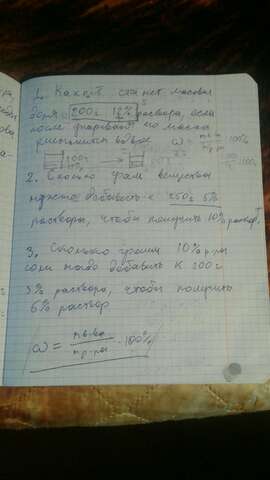 1. Какой станет массовая
доля 200г 12% раствора, если
после упаривания его масса
уменьшится вдвое ω = m в-ва / m р-ра · 100%
200г
2. Сколько грам вещества
нужно добавить к 250г 5%
раствора, чтобы получить 10% раствор
3. Сколько грамм 10% р-ра
соли надо добавить к 200г
3% раствора, чтобы получить
6% раствор
ω = m в-ва / m р-ра · 100%